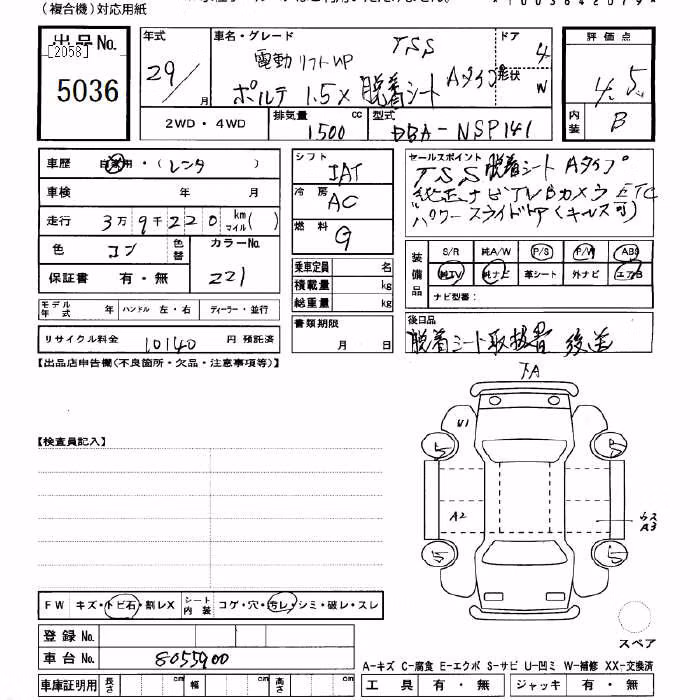 (複合機)対応用紙
出品No. [2058] 5036
年式 29/ 月
車名・グレード 電動リフトUP TSS
ポルテ 1.5X 脱着シート Aタイプ
ドア 4
形状 W
評価点 4.5
内装 B
2WD・4WD
排気量 1500 cc
型式 DBA-NSP141
車歴 自家用・(レンタ)
車検 年 月
走行 3万9千220 km マイル( )
色 コン 色替 カラーNo. 221
保証書 有・無
モデル年式 年 ハンドル 左・右 ディーラー・並行
リサイクル料金 10140 円 預託済
シフト IAT
冷房 AC
燃料 G
乗車定員 名
積載量 kg
総重量 kg
書類期限 月 日
セールスポイント 脱着シート Aタイプ
TSS
純正ナビTVBカメラ ETC
パワースライドドア(キーレス可)
装備品 S/R 純A/W P/S P/W ABS
純TV 純ナビ 革シート 外ナビ エアB
ナビ型番:
後日品
脱着シート取扱書 後送
【出品店申告欄(不良箇所・欠品・注意事項等)】
下A
U1
5 5
A2
A3
5 5
スペア
【検査員記入】
FW キズ・トビ石・割レX シート内装 コゲ・穴・汚レ・シミ・破レ・スレ
登録No.
車台No. 8055900
車庫証明用 長さ cm 幅 cm 高さ cm
A-キズ C-腐食 E-エクボ S-サビ U-凹ミ W-補修 XX-交換済
工具 有・無 ジャッキ 有・無